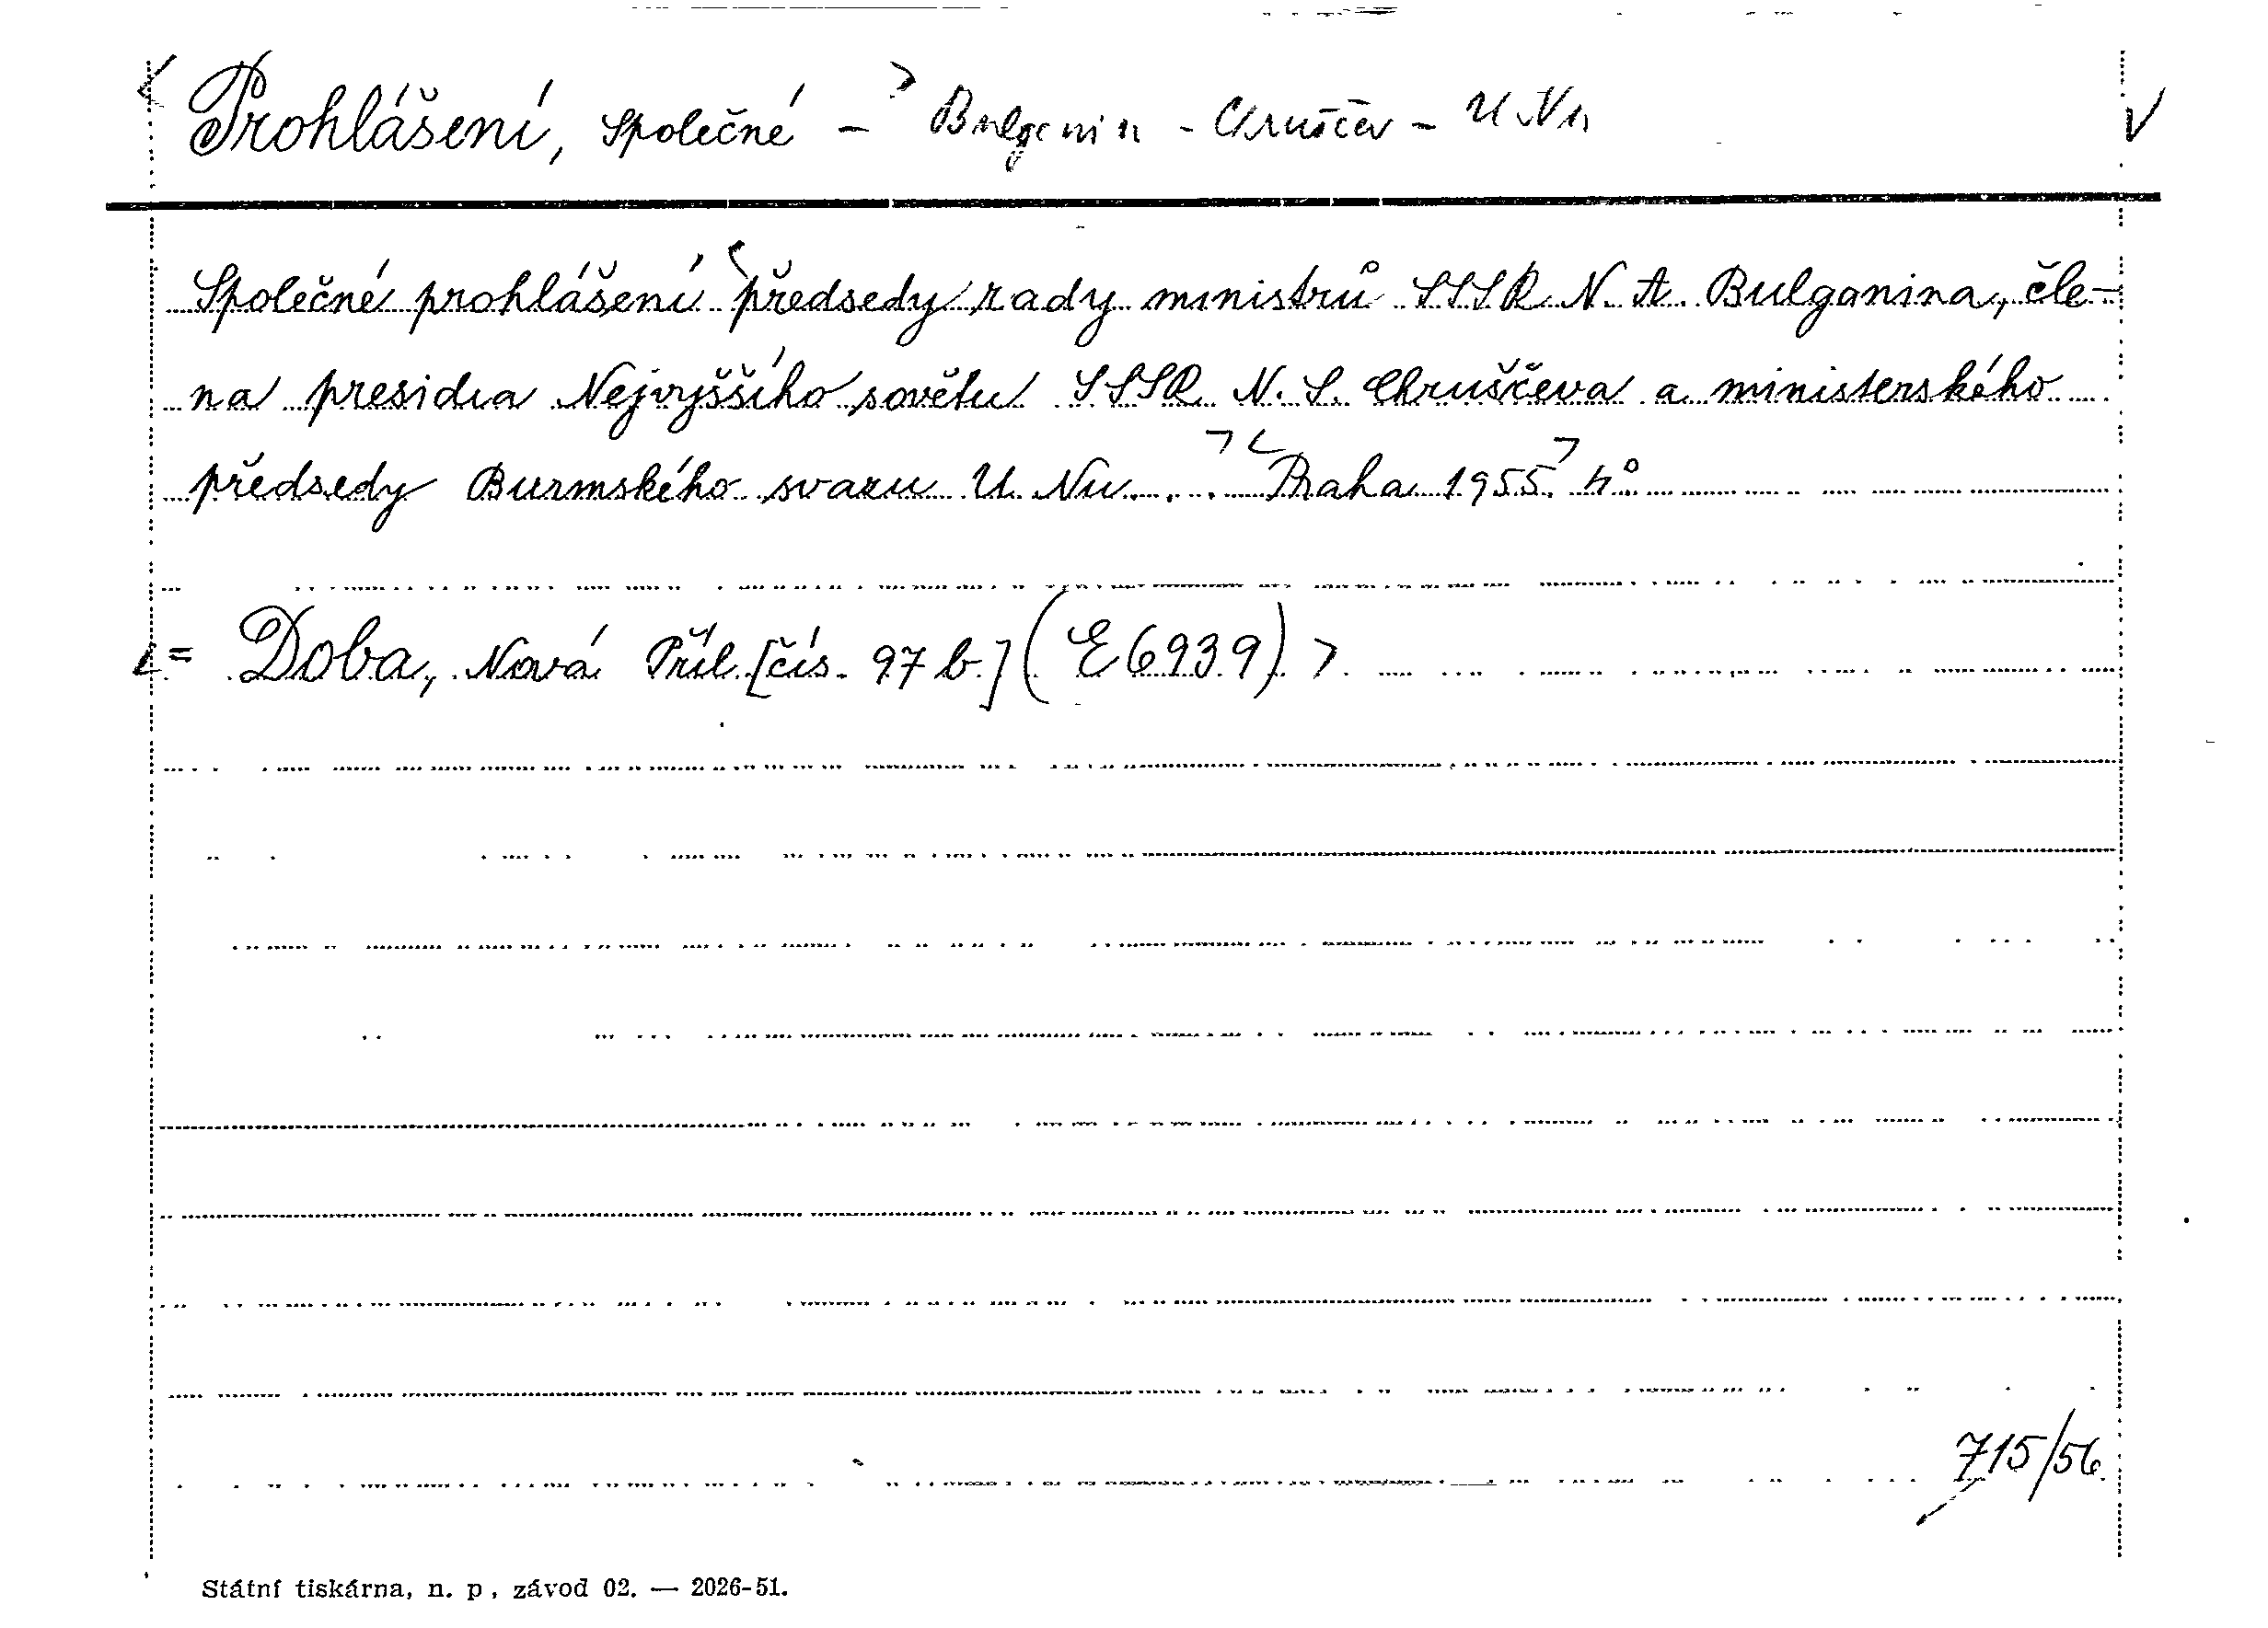 < Prohlášení, společné – > Bulganin - Chruščev – U Nu V
Společné prohlášení < předsedy rady ministrů SSSR N. A. Bulganina, čle-
na presidia Nejvyššího sovětu SSSR N. S. Chruščeva a ministerského
předsedy Burmského svazu U Nu. . . > < Praha 1955. > 4°
< = Doba, Nová Příl. [čís. 97 b.] (E 6939) >
715/56
Státní tiskárna, n. p., závod 02. — 2026-51.